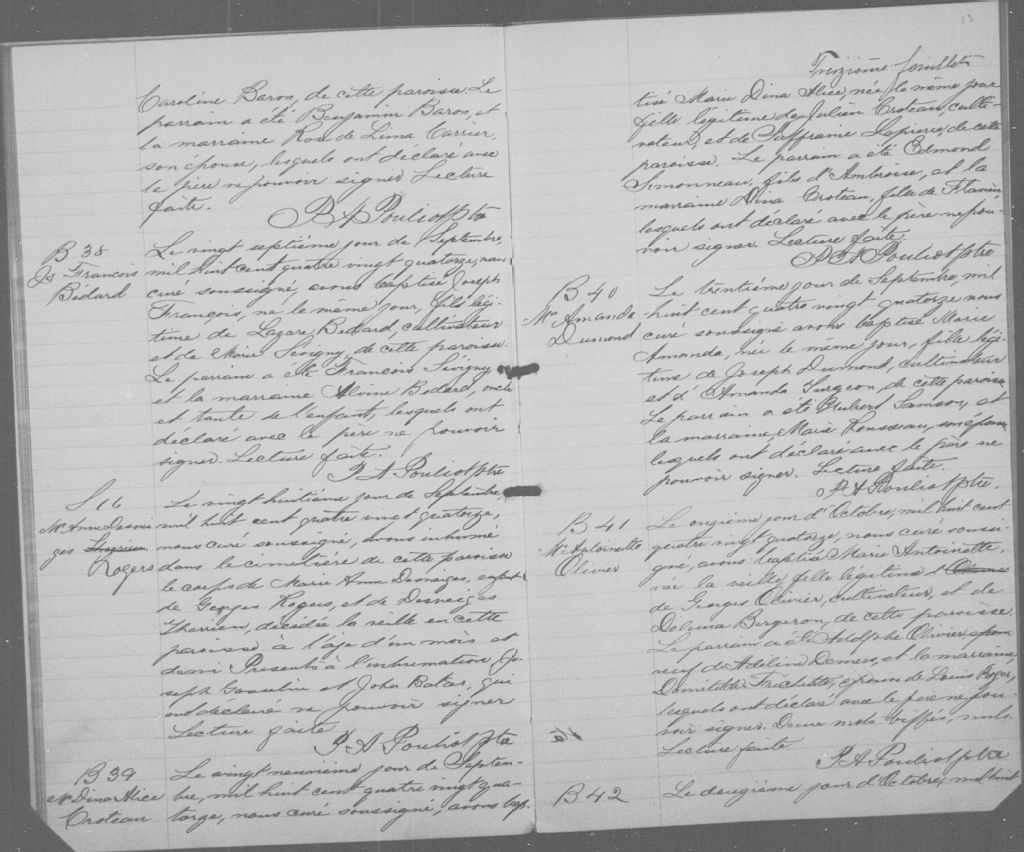 Caroline Baron, de cette paroisse. Le
parrain a été Benjamin Baron, et
la marraine Rose de Lima Carrier,
son épouse, lesquels ont déclaré avec
le père ne pouvoir signer. Lecture
faite.
P A Pouliot Ptre
B 38
Js François
Bédard
Le vingt septième jour de Septembre,
mil huit cent quatre vingt quatorze, nous
curé soussigné, avons baptisé Joseph
François, né le même jour, fils légi-
time de Lazare Bédard, cultivateur
et de Marie Sévigny, de cette paroisse.
Le parrain a été François Sévigny
et la marraine Alvine Bédard, oncle
et tante de l'enfant, lesquels ont
déclaré avec le père ne pouvoir
signer. Lecture faite.
P A Pouliot Ptre
S 16
Me Anne Desnei
ges
Rogers
Le vingt huitième jour de Septembre,
mil huit cent quatre vingt quatorze,
nous curé soussigné, avons inhumé
dans le cimetière de cette paroisse
le corps de Marie Anne Desneiges, enfant
de Georges Rogers, et de Desneiges
Therrien, décédée la veille en cette
paroisse à l'âge d'un mois et
demi. Présents à l'inhumation, Jo-
seph Gosselin et John Baker, qui
ont déclaré ne pouvoir signer
Lecture faite
P A Pouliot Ptre
B 39
Me Dina Alice
Croteau
Le vingt neuvième jour de Septem-
bre, mil huit cent quatre vingt qua-
torze, nous curé soussigné, avons bap-
13
Treizième feuillet
tisé Marie Dina Alice, née le même jour
fille légitime de Julien Croteau, culti-
vateur, et de Suffranie Lapierre, de cette
paroisse. Le parrain a été Edmond
Simonneau, fils d'Ambroise, et la
marraine Dina Croteau, fille de Flavien
lesquels ont déclaré avec le père ne pou-
voir signer. Lecture faite.
P A Pouliot Ptre
B 40
Me Amanda
Dumond
Le trentième jour de Septembre, mil
huit cent quatre vingt quatorze nous
curé soussigné avons baptisé Marie
Amanda, née le même jour, fille légi-
time de Joseph Dumond, cultivateur
et d'Amanda Turgeon, de cette paroisse
Le parrain a été Hubert Samson, et
la marraine, Marie Rousseau, son épouse
lesquels ont déclaré avec le père ne
pouvoir signer. Lecture faite.
P A Pouliot Ptre.
B 41
Me Antoinette
Olivier
Le onzième jour d'Octobre, mil huit cent
quatre vingt quatorze, nous curé soussi-
gné, avons baptisé Marie Antoinette,
née la veille, fille légitime
de Georges Olivier, cultivateur, et de
Delvina Bergeron, de cette paroisse.
Le parrain a été Adolphe Olivier, époux
de Adeline Demers, et la marraine,
Domitilde Frichette, épouse de Louis Roger,
lesquels ont déclaré avec le père ne pou-
voir signer. Deux mots biffés, nuls.
Lecture faite.
P A Pouliot Ptre
B 42
Le douzième jour d'Octobre, mil huit